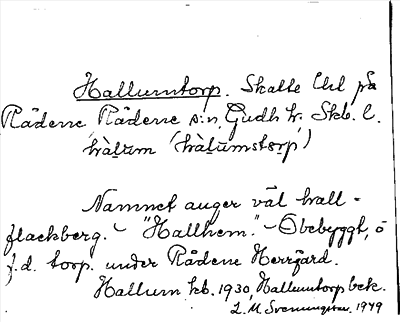 Hallumtorp. Skatte Uel på
Rådene, Rådene s:n, Gudh. h. Skb. l.
hàlum (hàlumstorp)
Namnet anger väl hall-
flackberg. - "Hallhem." - Obebyggt, ö
f.d. torp. under Rådene Herrgård.
Hallum hb. 1930, Hallumtorp bek.
L. M. Svenungsson. 1949